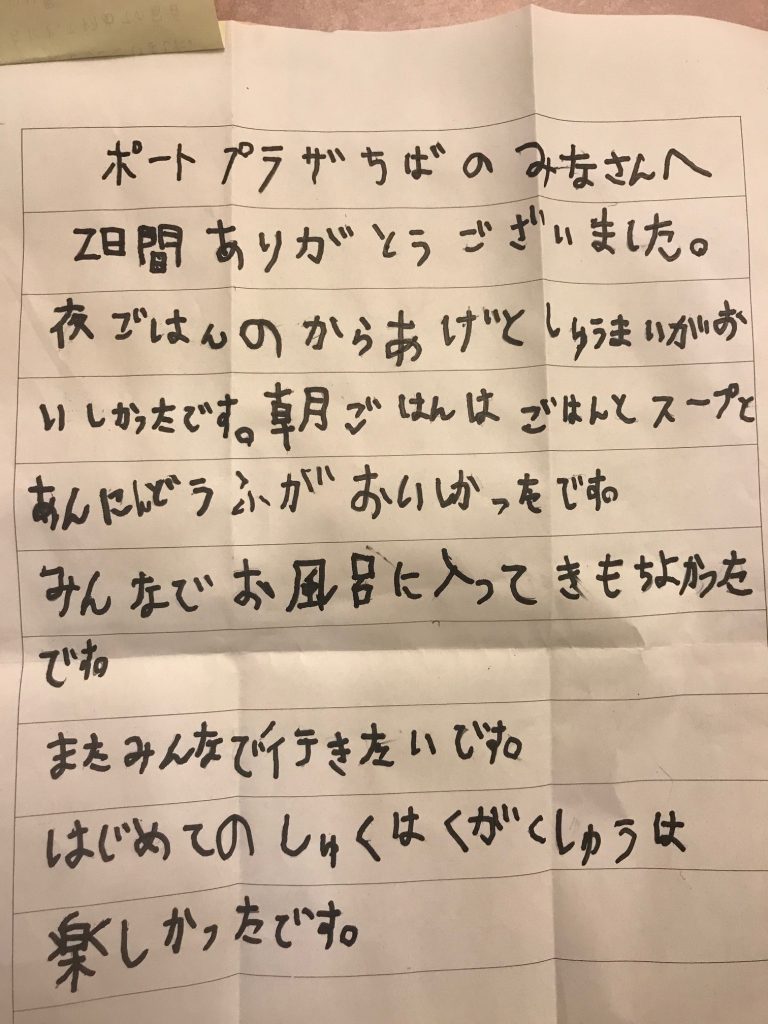 ポートプラザちばのみなさんへ
2日間ありがとうございました。
夜ごはんのからあげとしゅうまいがお
いしかったです。朝ごはんはごはんとスープと
あんにんどうふがおいしかったです。
みんなでお風呂に入ってきもちよかった
です。
またみんなで行きたいです。
はじめてのしゅくはくがくしゅうは
楽しかったです。